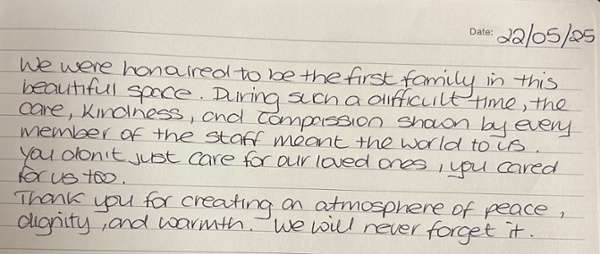 Date: 22/05/25
We were honoured to be the first family in this
beautiful space. During such a difficult time, the
care, kindness, and compassion shown by every
member of the staff meant the world to us.
You don't just care for our loved ones, you cared
for us too.
Thank you for creating an atmosphere of peace,
dignity, and warmth. We will never forget it.